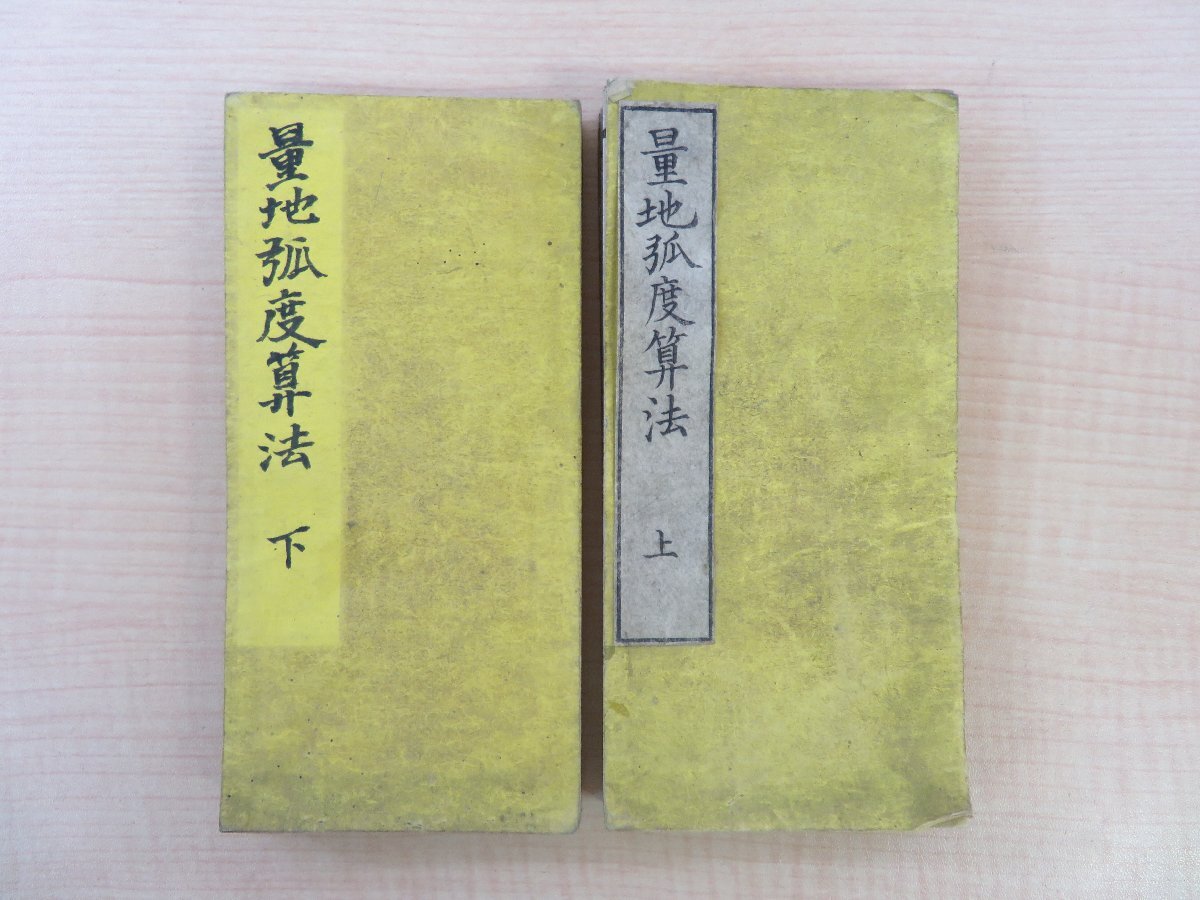 量地弧度算法 上
量地弧度算法 下